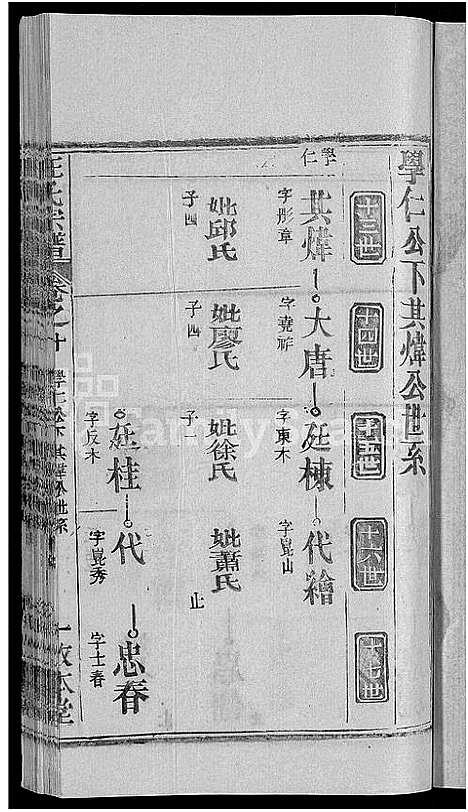 學仁公下其煒公世系
十三世
十四世
十五世
十六世
十七世
學仁
其煒
大唐
廷棟
代繪
字彤章
字堯祚
字東木
字崑山
妣邱氏
妣廖氏
妣徐氏
妣蕭氏
子四
子四
子一
止
廷桂
代
忠春
字反木
字崑秀
字士春
氏宗譜
卷之十
學仁公下其煒公世系
一敬本堂
Family